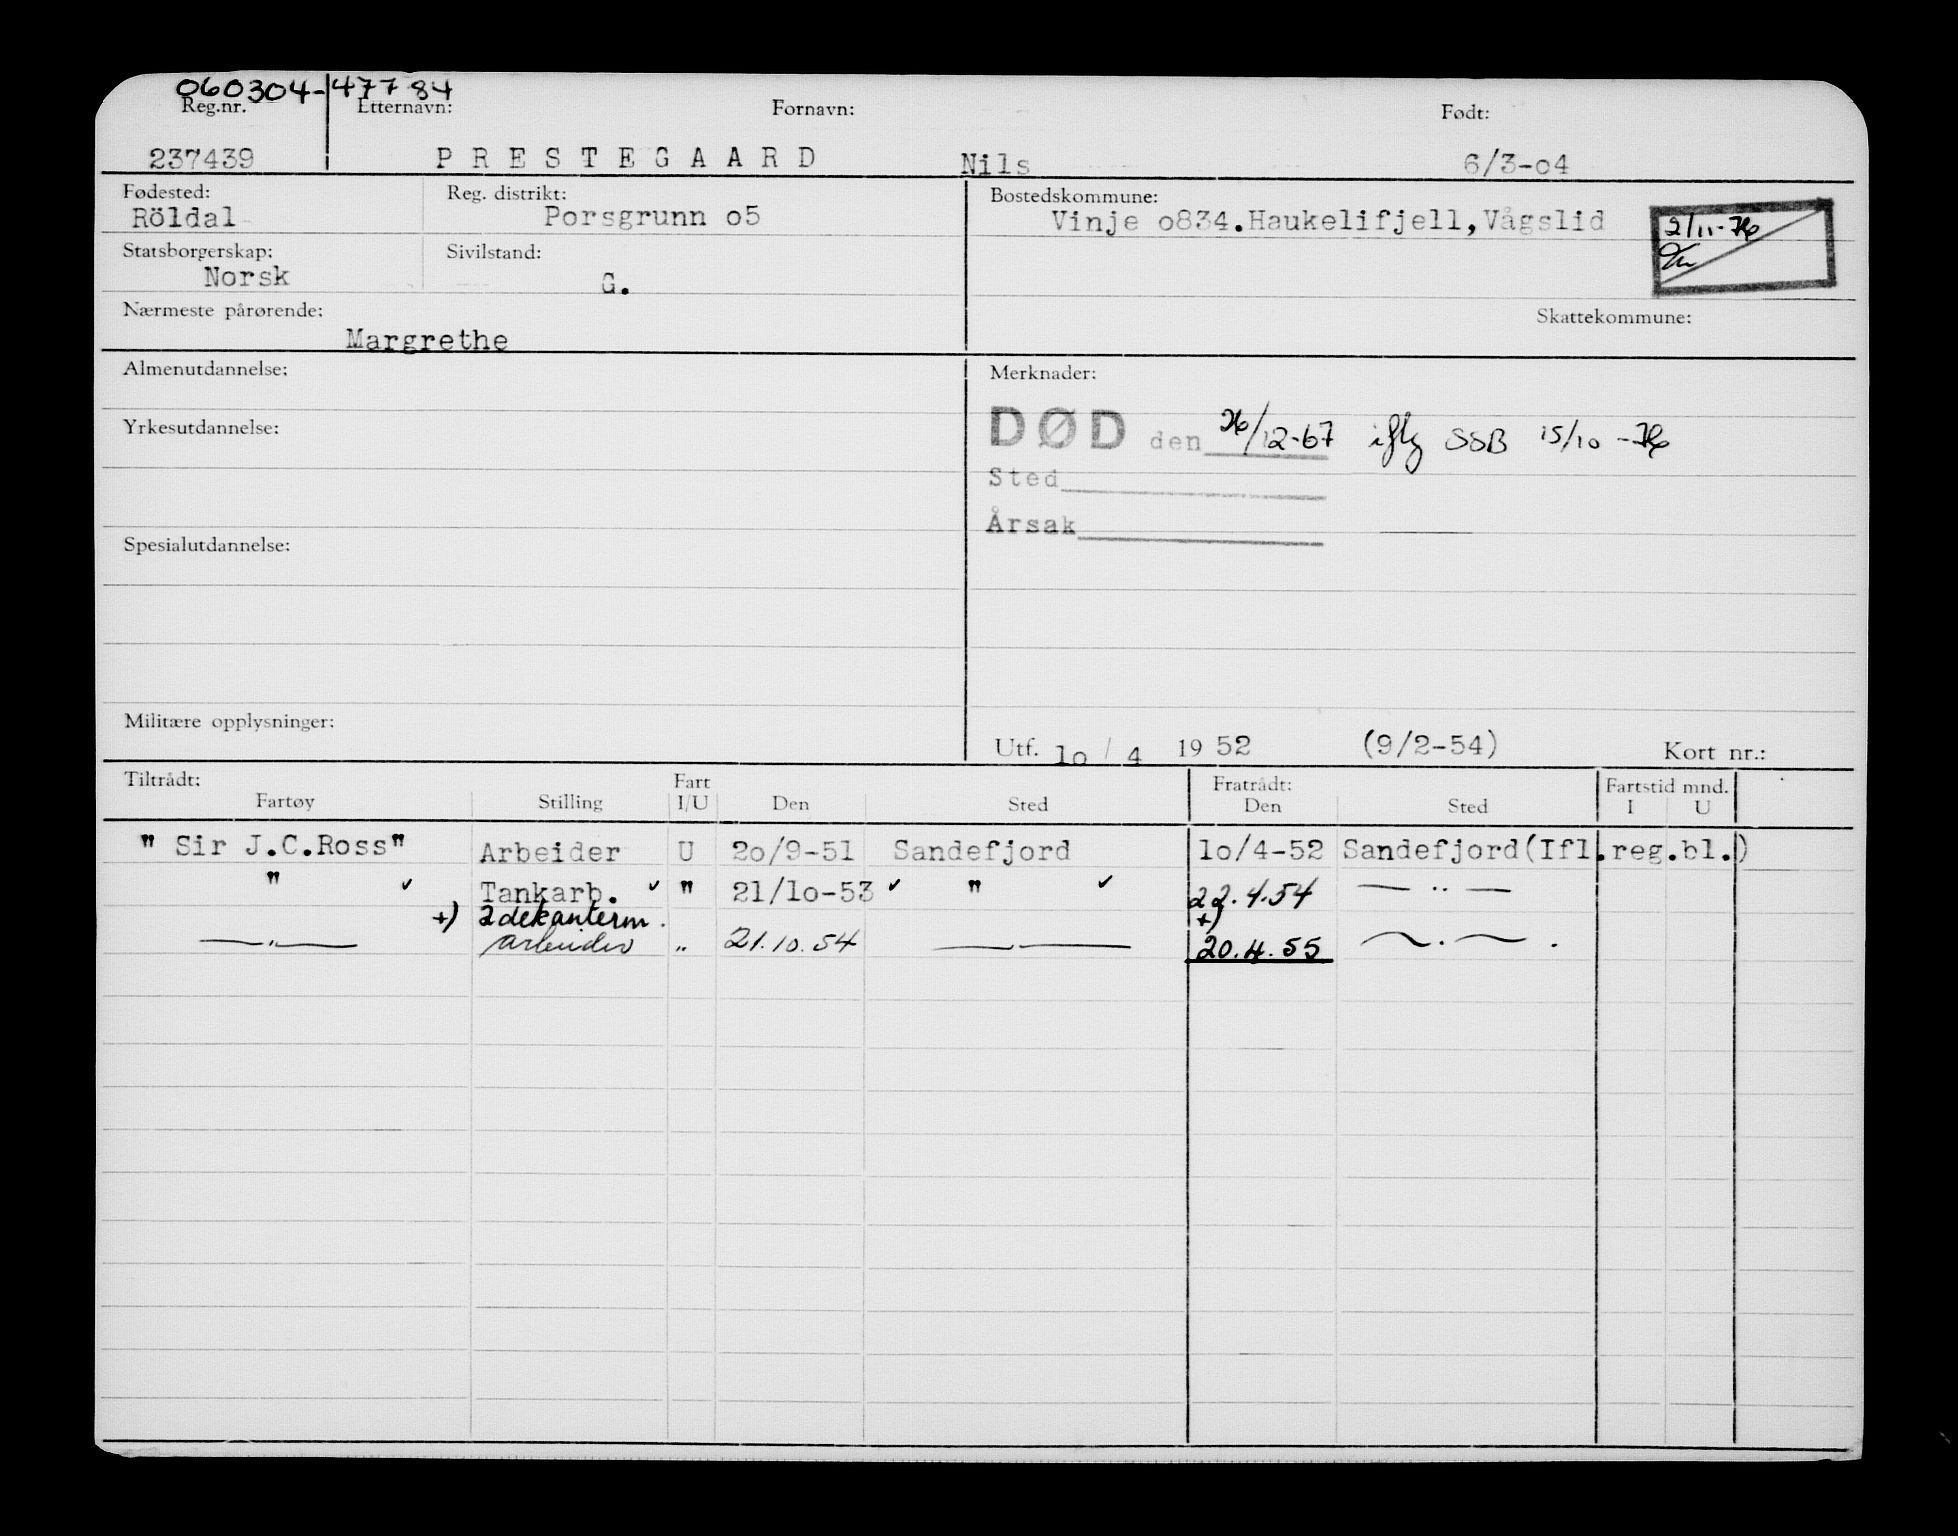 060304-47784
Reg.nr. Etternavn: Fornavn: Født:
237439 PRESTEGAARD Nils 6/3-o4
Fødested: Reg. distrikt: Bostedskommune:
Röldal Porsgrunn o5 Vinje o834.Haukelifjell,Vågslid
2/11-76
Statsborgerskap: Sivilstand:
Norsk G.
Nærmeste pårørende: Skattekommune:
Margrethe
Almenutdannelse: Merknader:
DØD den 26/12-67 iflg SSB 15/10-76
Yrkesutdannelse:
Sted
Årsak
Spesialutdannelse:
Militære opplysninger:
Utf. 1o / 4 19 52 (9/2-54) Kort nr.:
Tiltrådt: Fart Fratrådt: Fartstid mnd.
Fartøy Stilling I/U Den Sted Den Sted I U
" Sir J.C.Ross" Arbeider U 2o/9-51 Sandefjord 1o/4-52 Sandefjord(Ifl.reg.bl.)
" ✓ Tankarb. ✓ " 21/1o-53 ✓ " ✓ 22.4.54 — " —
+) 2dekanterm. +)
—"— arbeider " 21.10.54 —"— 20.4.55 —.—.